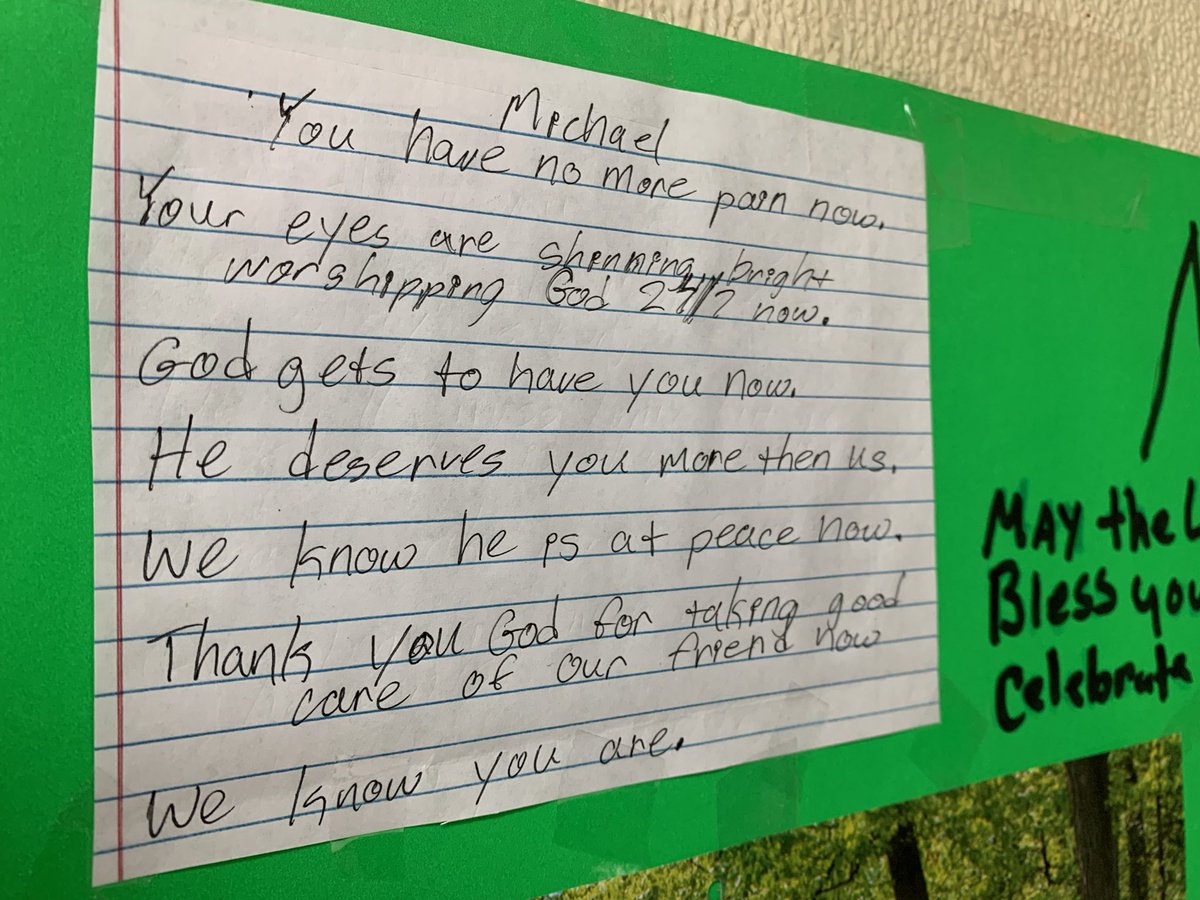 Michael
You have no more pain now.
Your eyes are shinning bright
worshipping God 24/7 now.
God gets to have you now.
He deserves you more then us.
We know he is at peace now.
Thank you God for taking good
care of our friend now
We know you are.
MAY the
Bless you
Celebrate